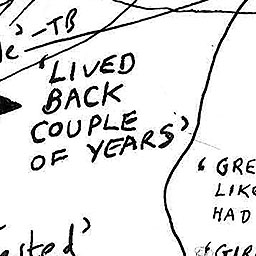 le' -TB
'LIVED
BACK
COUPLE
OF YEARS'
' GRE
LIKE
HAD
'GIR
ested'